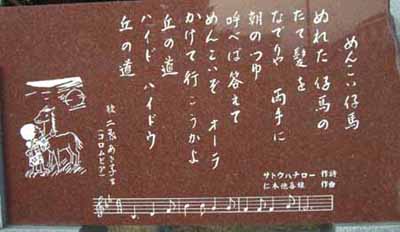 めんこい仔馬
ぬれた仔馬の
たて髪を
なでりゃ 両手に
朝のつゆ
呼べば答えて
めんこいぞ オーラ
かけて行こうかよ
丘の道
ハイド ハイドウ
丘の道
二葉あき子
(コロムビア)
サトウハチロー 作詩
仁木他喜雄 作曲